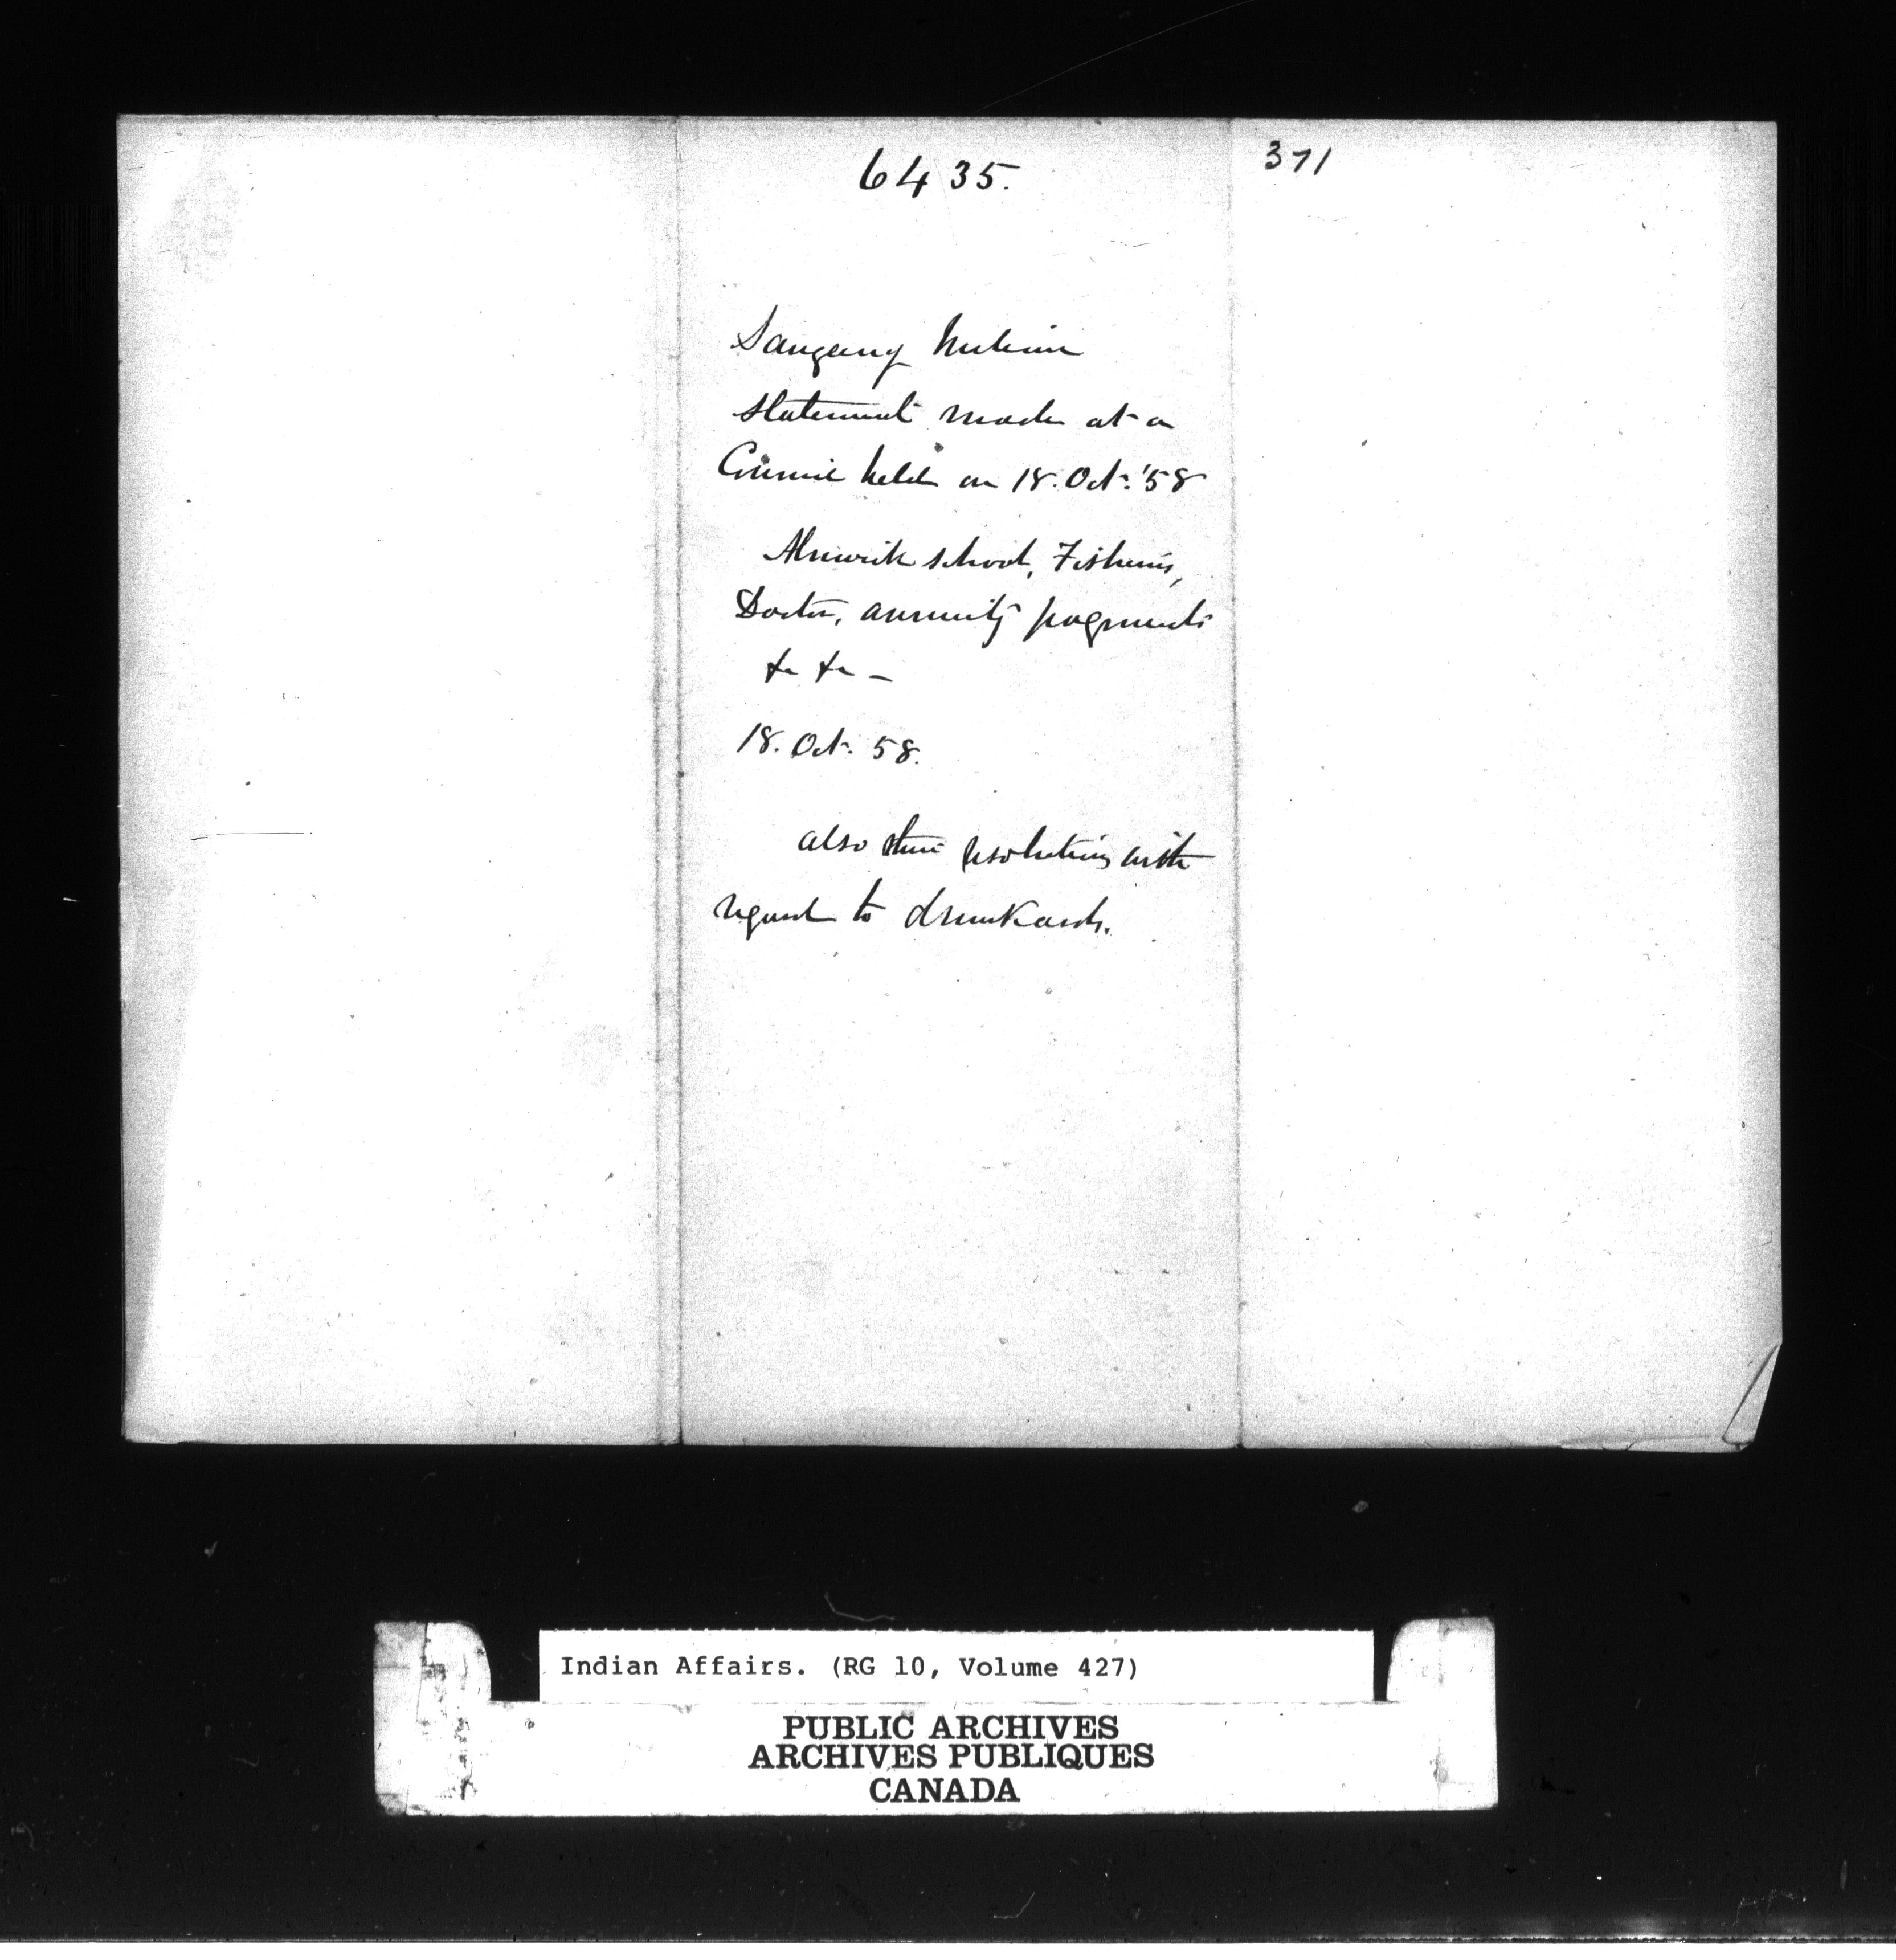 6435.
371
Saugeeng Indians
statement made at a
Council held on 18. Oct. '58
Alnwick school, Fisheries,
Doctor, annuity payments
&c &c —
18. Oct. 58.
also their resolutions with
regard to drunkards.
Indian Affairs. (RG 10, Volume 427)
PUBLIC ARCHIVES
ARCHIVES PUBLIQUES
CANADA